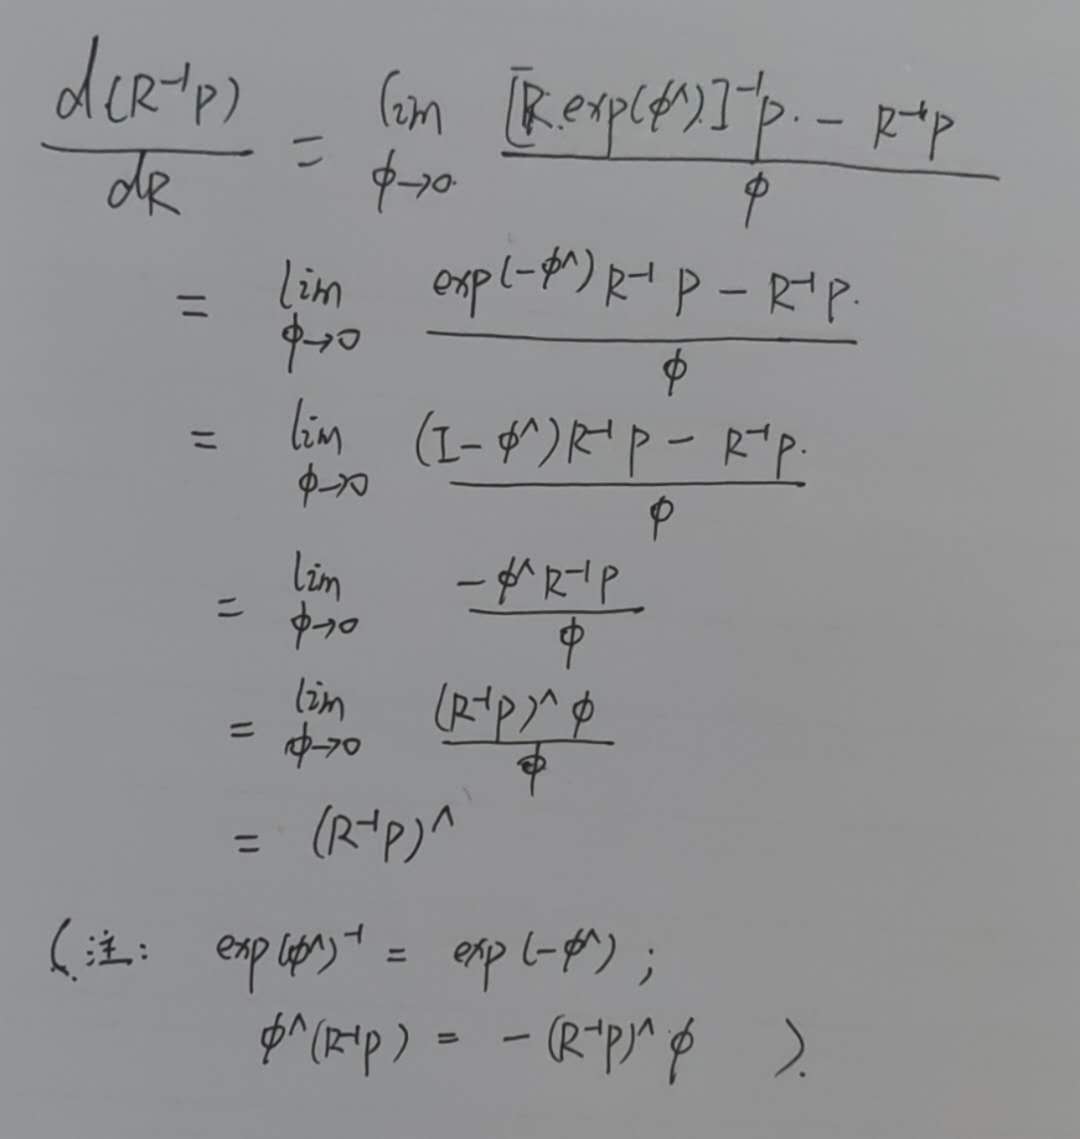 d(R⁻¹p)/dR = lim φ→0 ([R·exp(φ^)]⁻¹p - R⁻¹p)/φ
= lim φ→0 (exp(-φ^)R⁻¹p - R⁻¹p)/φ
= lim φ→0 ((I-φ^)R⁻¹p - R⁻¹p)/φ
= lim φ→0 (-φ^R⁻¹p)/φ
= lim φ→0 ((R⁻¹p)^φ)/φ
= (R⁻¹p)^
(注: exp(φ^)⁻¹ = exp(-φ^);
φ^(R⁻¹p) = -(R⁻¹p)^φ ).